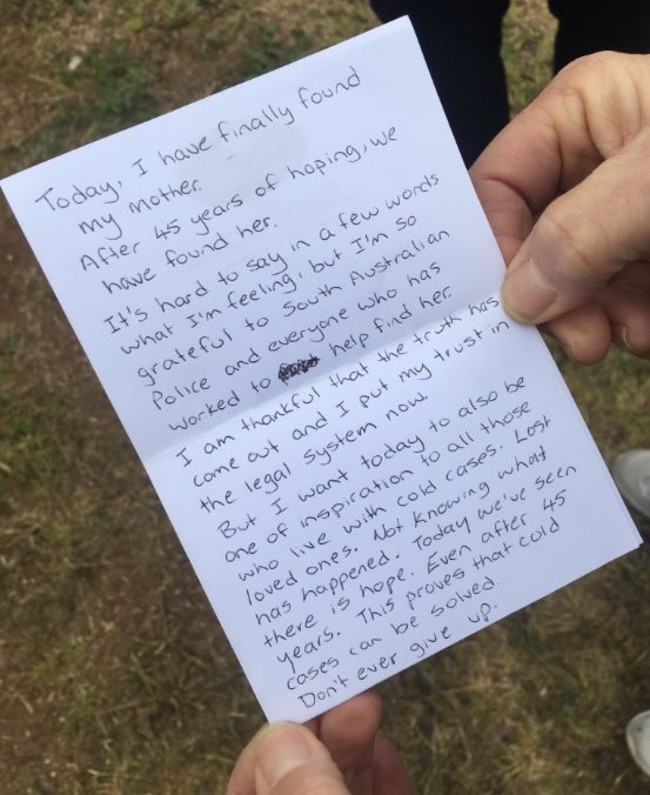 Today, I have finally found
my mother.
After 45 years of hoping, we
have found her.
It's hard to say in a few words
what I'm feeling, but I'm so
grateful to South Australian
Police and everyone who has
worked to help find her.
I am thankful that the truth has
come out and I put my trust in
the legal system now.
But I want today to also be
one of inspiration to all those
who live with cold cases. Lost
loved ones. Not knowing what
has happened. Today we've seen
there is hope. Even after 45
years. This proves that cold
cases can be solved.
Don't ever give up.